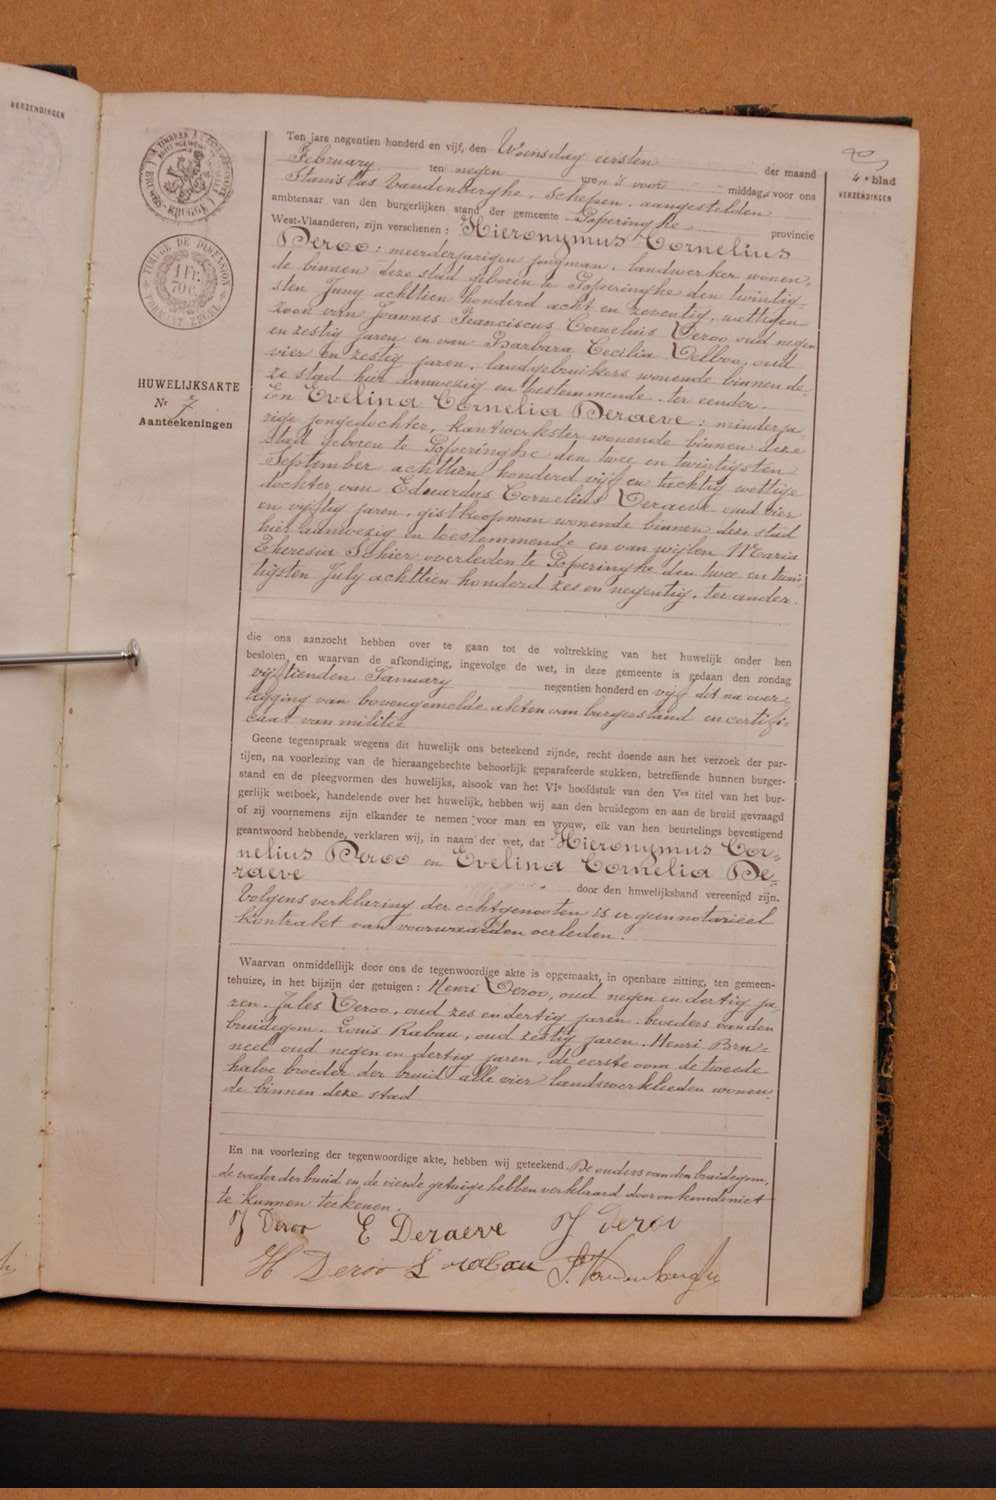 VERZENDINGEN
4e blad
VERZENDINGEN
TIMBRE DE DIMENSION
1 FR.
70 C.
FORMAAT ZEGEL
BRUGGE
HUWELIJKSAKTE
Nr 7
Aanteekeningen
Ten jare negentien honderd en vijf, den Woensdag eersten
der maand
February ten negen uren 's voor middag, voor ons
Stanislas Vandenberghe, Schepen, aangestelden
ambtenaar van den burgerlijken stand der gemeente Poperinghe provincie
West-Vlaanderen, zijn verschenen : Hieronymus Cornelius
Deroo : meerderjarigen jongman, landwerker wonen-
de binnen deze stad geboren te Poperinghe den twintig-
sten Juny achttien honderd acht en zeventig, wettigen
zoon van Joannes Franciscus Cornelius Deroo oud negen
en zestig jaren en van Barbara Cecilia Delboo, oud
vier en zestig jaren, landgebruikers wonende binnen de-
ze stad hier aanwezig en toestemmende ter eender.
En Evelina Cornelia Deraeve : minderja-
rige jongedochter, kantwerkster wonende binnen deze
stad geboren te Poperinghe den twee en twintigsten
September achttien honderd vijf en tachtig wettige
dochter van Eduardus Cornelius Deraeve oud vier
en vijftig jaren, gistkoopman wonende binnen deze stad
hier aanwezig en toestemmende en van wijlen Maria
Theresia Schier overleden te Poperinghe den twee en twin-
tigsten July achttien honderd zes en negentig, ter ander.
die ons aanzocht hebben over te gaan tot de voltrekking van het huwelijk onder hen
besloten, en waarvan de afkondiging, ingevolge de wet, in deze gemeente is gedaan den zondag
vijftienden January negentien honderd en vijf dit na over-
legging van bovengemelde akten van burgerstand en certifi-
caat van militie
Geene tegenspraak wegens dit huwelijk ons beteekend zijnde, recht doende aan het verzoek der par-
tijen, na voorlezing van de hieraangehechte behoorlijk geparafeerde stukken, betreffende hunnen burger-
stand en de pleegvormen des huwelijks, alsook van het VIe hoofdstuk van den Ven titel van het bur-
gerlijk wetboek, handelende over het huwelijk, hebben wij aan den bruidegom en aan de bruid gevraagd
of zij voornemens zijn elkander te nemen voor man en vrouw, elk van hen beurtelings bevestigend
geantwoord hebbende, verklaren wij, in naam der wet, dat Hieronymus Cor-
nelius Deroo en Evelina Cornelia De-
raeve door den huwelijksband vereenigd zijn.
Volgens verklaring der echtgenooten is er geen notarieel
kontrakt van voorwaarden verleden.
Waarvan onmiddellijk door ons de tegenwoordige akte is opgemaakt, in openbare zitting, ten gemeen-
tehuize, in het bijzijn der getuigen : Henri Deroo, oud negen en dertig ja-
ren. Jules Deroo, oud zes en dertig jaren, broeders van den
bruidegom. Louis Rabau, oud zestig jaren. Henri Bru-
neel oud negen en dertig jaren, de eerste oom de tweede
halve broeder der bruid alle vier landswerklieden wonen-
de binnen deze stad
En na voorlezing der tegenwoordige akte, hebben wij geteekend. De ouders van den bruidegom,
de vader der bruid en de vierde getuige hebben verklaard door onkunde niet
te kunnen teekenen.
J Deroo E Deraeve J Deroo
H Deroo L Rabau S. Vandenberghe